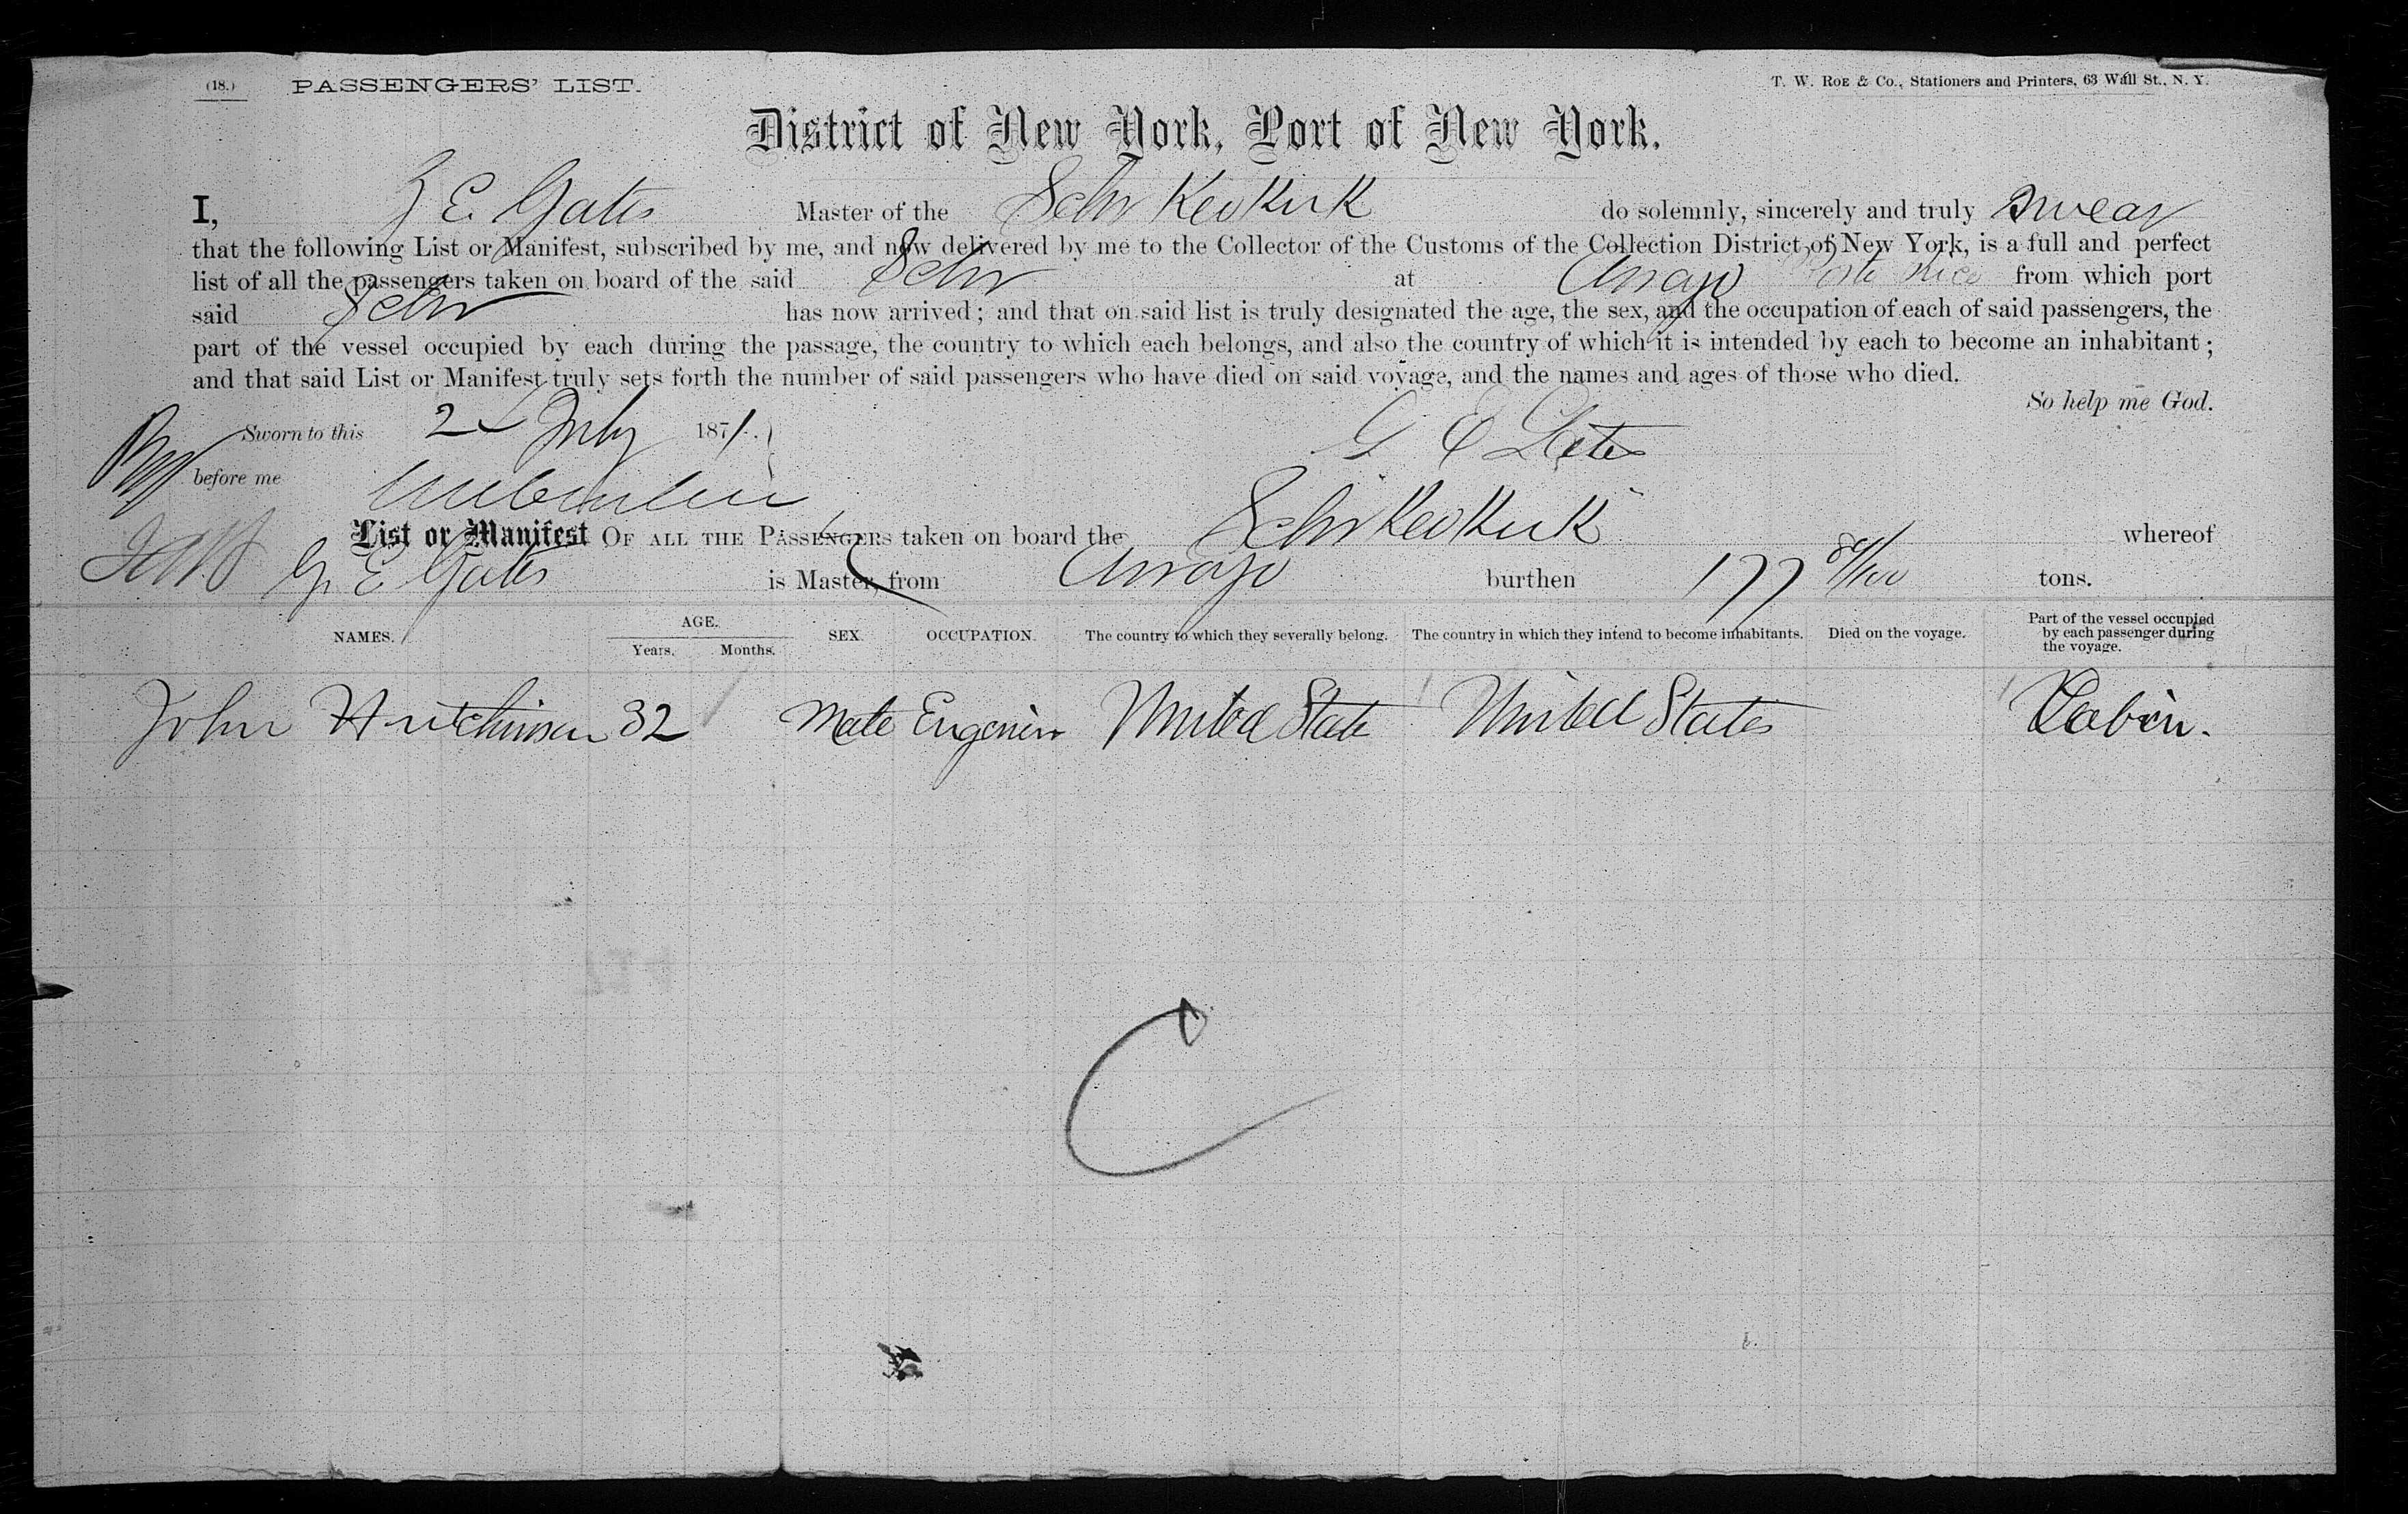 (18.) PASSENGERS' LIST. T. W. ROE & Co., Stationers and Printers, 63 Wall St., N. Y.
District of New York, Port of New York.
I, G E. Gates Master of the Schr Keokuk do solemnly, sincerely and truly swear
that the following List or Manifest, subscribed by me, and now delivered by me to the Collector of the Customs of the Collection District of New York, is a full and perfect
list of all the passengers taken on board of the said Schr at Arroyo Porto Rico from which port
said Schr has now arrived; and that on said list is truly designated the age, the sex, and the occupation of each of said passengers, the
part of the vessel occupied by each during the passage, the country to which each belongs, and also the country of which it is intended by each to become an inhabitant;
and that said List or Manifest truly sets forth the number of said passengers who have died on said voyage, and the names and ages of those who died.
So help me God.
Sworn to this 2 July 1871. G E Gates
before me
List or Manifest OF ALL THE PASSENGERS taken on board the Schr Keokuk whereof
G. E Gates is Master, from Arroyo burthen 177 /100 tons.
NAMES. AGE. Years. Months. SEX. OCCUPATION. The country to which they severally belong. The country in which they intend to become inhabitants. Died on the voyage. Part of the vessel occupied by each passenger during the voyage.
John Hutchinson 32 Male Engenier United State United States Cabin.
C